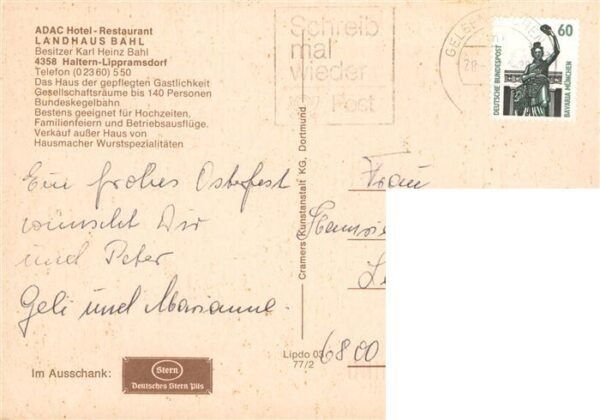 ADAC Hotel-Restaurant
LANDHAUS BAHL
Besitzer Karl Heinz Bahl
4358 Haltern-Lippramsdorf
Telefon (02360) 550
Das Haus der gepflegten Gastlichkeit
Gesellschaftsräume bis 140 Personen
Bundeskegelbahn
Bestens geeignet für Hochzeiten,
Familienfeiern und Betriebsausflüge.
Verkauf außer Haus von
Hausmacher Wurstspezialitäten
Schreib
mal
wieder
Post
60
DEUTSCHE BUNDESPOST
BAVARIA MÜNCHEN
Ein frohes Osterfest
wünscht Dir
und Peter
Geli und Marianne.
Cramers Kunstanstalt KG, Dortmund
Frau
6800
Lipdo 03
77/2
Im Ausschank:
Stern
Deutsches Stern Pils